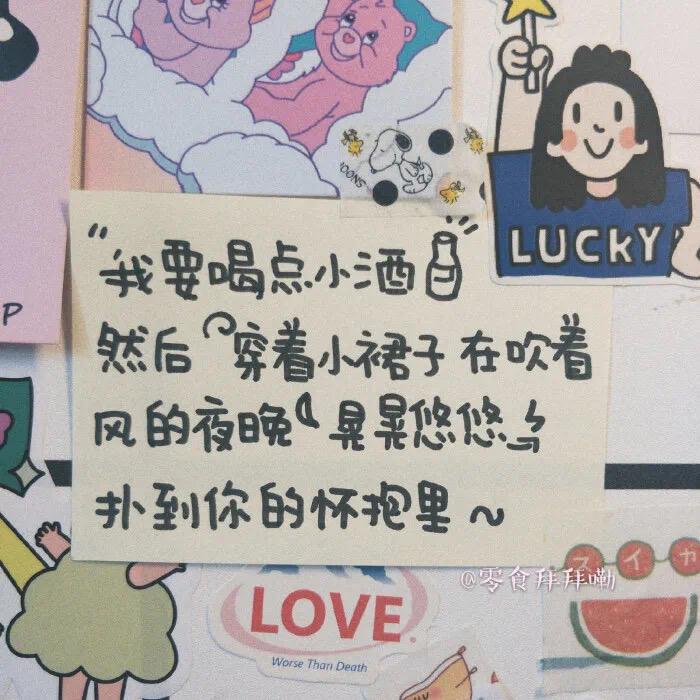 SNOO
LUCKY
P
"我要喝点小酒"
然后 穿着小裙子 在吹着
风的夜晚 晃晃悠悠
扑到你的怀抱里~
@零食拜拜嘞
スイカ
LOVE
Worse Than Death